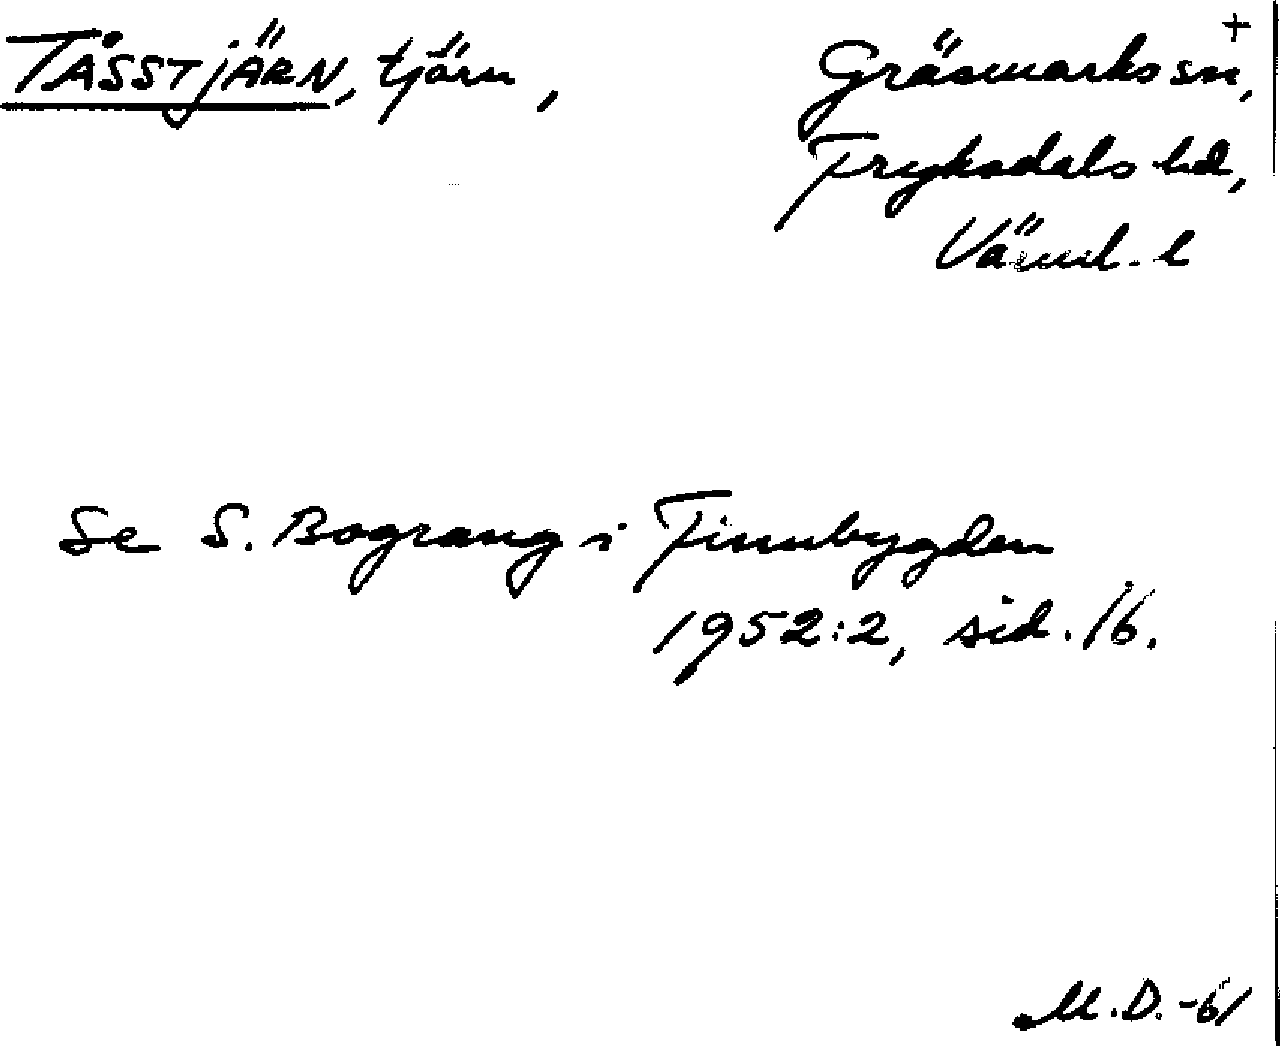 TÅSSTJÄRN, tjärn, Gräsmarks sn, +
Fryksdals hd,
Värml. l
Se S. Bograng i Finnbygden
1952:2, sid. 16.
M.D. -61